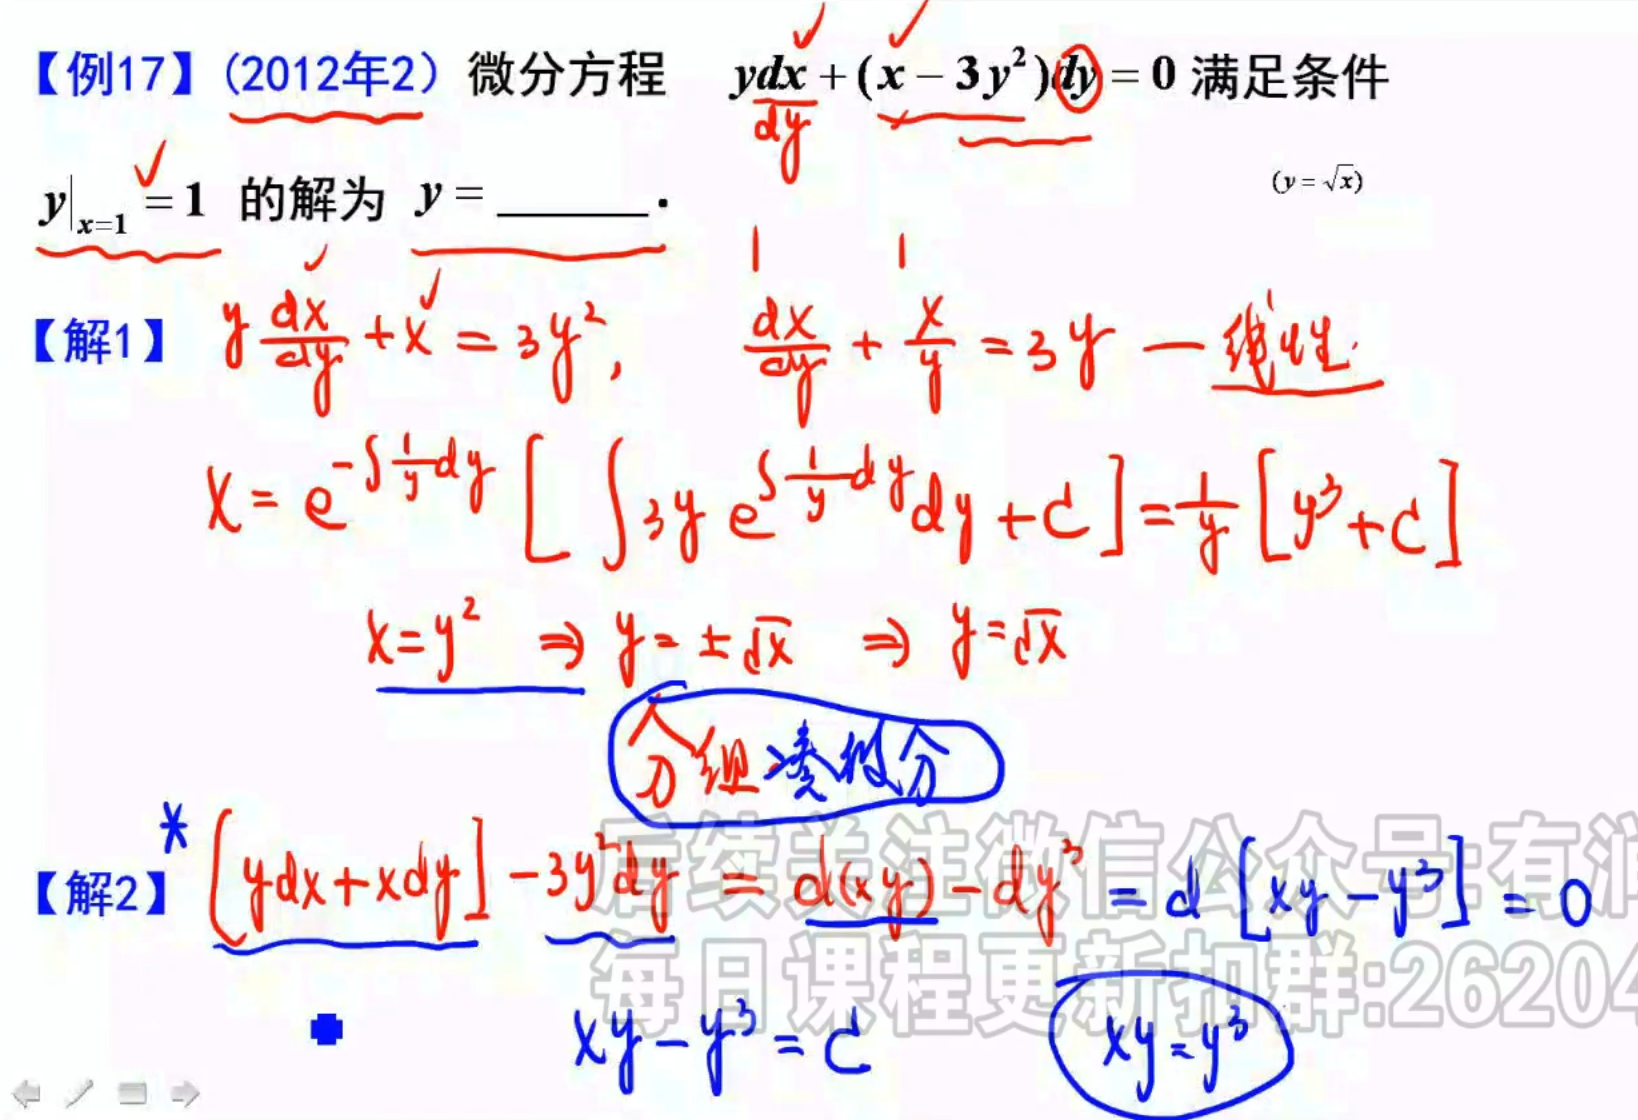 【例17】(2012年2) 微分方程 ydx + (x − 3y²)dy = 0 满足条件
dy
y|ₓ₌₁ = 1 的解为 y = ______.
(y = √x)
1 1
【解1】 y dx/dy + x = 3y², dx/dy + x/y = 3y — 线性.
x = e^(−∫ 1/y dy) [ ∫ 3y e^(∫ 1/y dy) dy + C ] = 1/y [y³ + C]
x = y² ⇒ y = ±√x ⇒ y = √x
分组凑微分
*
【解2】 [ydx + xdy] − 3y²dy = d(xy) − dy³ = d [xy − y³] = 0
后续关注微信公众号:有
每日课程更新扣群:26204
xy − y³ = C xy = y³